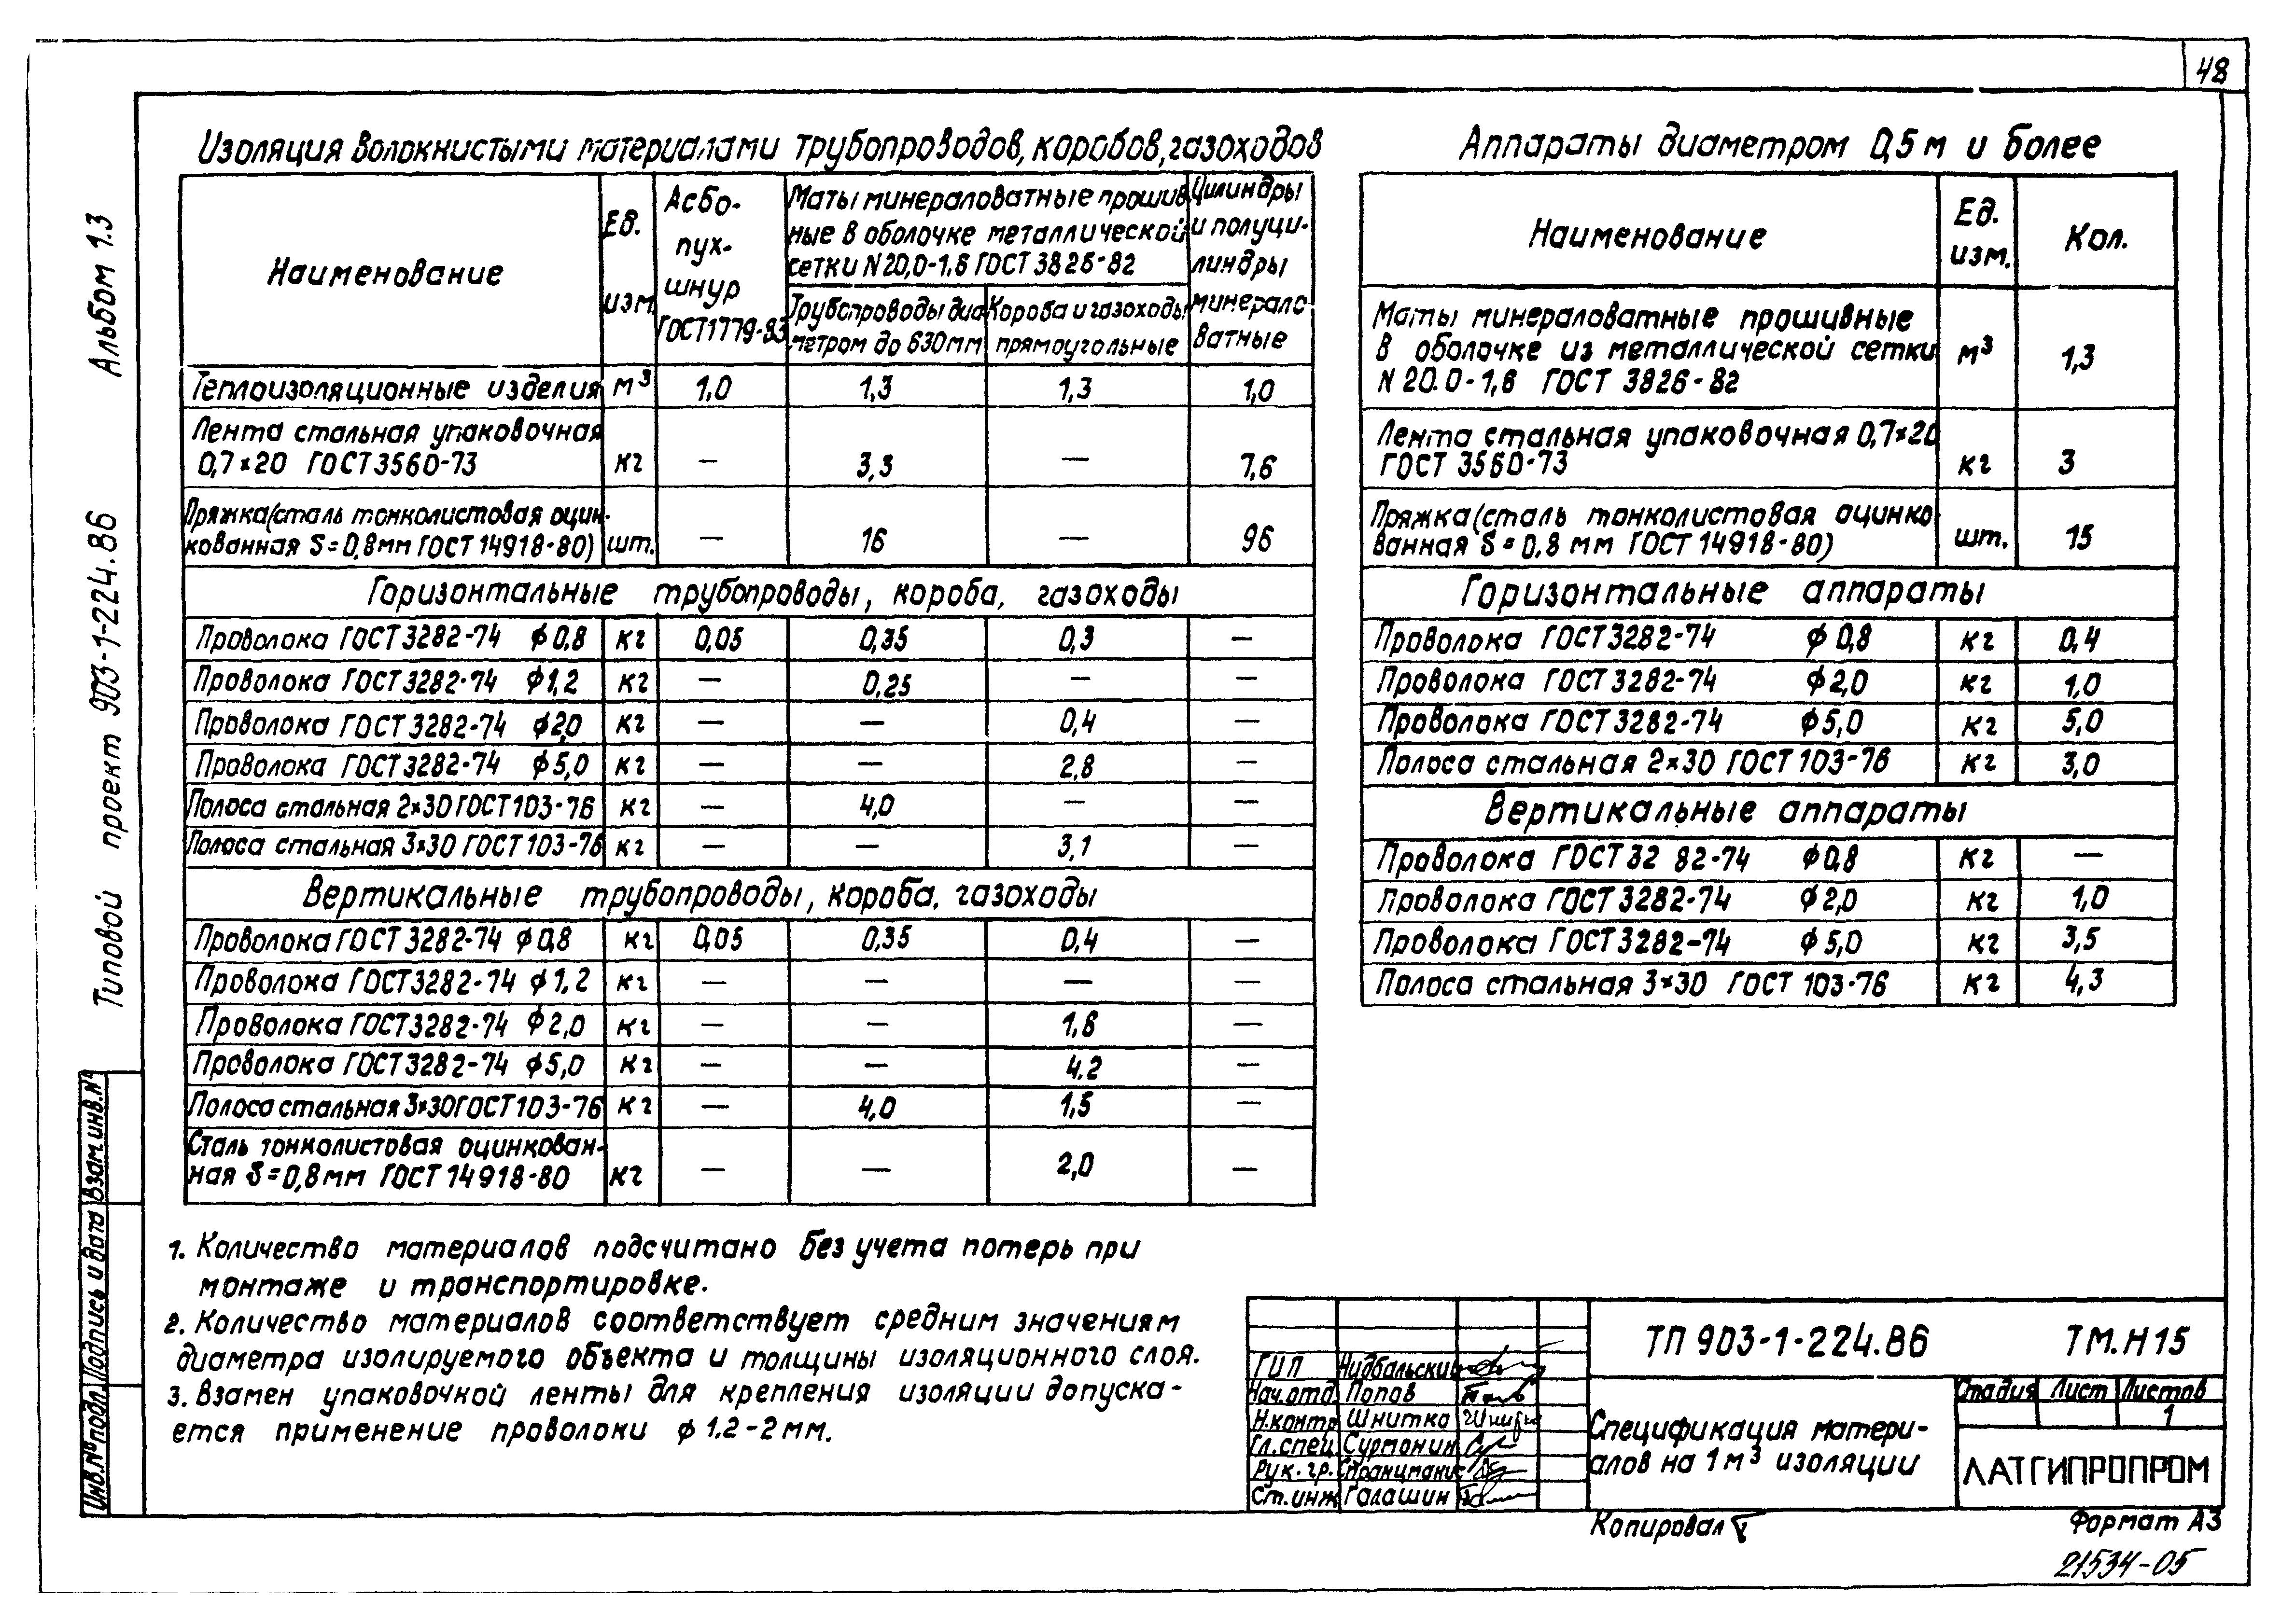 48
Альбом 1.3
Типовой проект 903-1-224.86
Изоляция волокнистыми материалами трубопроводов, коробов, газоходов
Наименование
Ед. изм.
Асбопухшнур ГОСТ 1779-83
Маты минераловатные прошивные в оболочке металлической сетки N20,0-1,6 ГОСТ 3826-82
Трубопроводы диаметром до 630мм
Короба и газоходы прямоугольные
Цилиндры и полуцилиндры минераловатные
Теплоизоляционные изделия м³ 1,0 1,3 1,3 1,0
Лента стальная упаковочная
0,7×20 ГОСТ 3560-73 кг — 3,3 — 7,6
Пряжка (сталь тонколистовая оцин-
кованная S=0,8мм ГОСТ 14918-80) шт. — 16 — 96
Горизонтальные трубопроводы, короба, газоходы
Проволока ГОСТ 3282-74 ϕ0,8 кг 0,05 0,35 0,3 —
Проволока ГОСТ 3282-74 ϕ1,2 кг — 0,25 — —
Проволока ГОСТ 3282-74 ϕ2,0 кг — — 0,4 —
Проволока ГОСТ 3282-74 ϕ5,0 кг — — 2,8 —
Полоса стальная 2×30 ГОСТ 103-76 кг — 4,0 — —
Полоса стальная 3×30 ГОСТ 103-76 кг — — 3,1 —
Вертикальные трубопроводы, короба, газоходы
Проволока ГОСТ 3282-74 ϕ0,8 кг 0,05 0,35 0,4 —
Проволока ГОСТ 3282-74 ϕ1,2 кг — — — —
Проволока ГОСТ 3282-74 ϕ2,0 кг — — 1,6 —
Проволока ГОСТ 3282-74 ϕ5,0 кг — — 4,2 —
Полоса стальная 3×30 ГОСТ 103-76 кг — 4,0 1,5 —
Сталь тонколистовая оцинкован-
ная S=0,8мм ГОСТ 14918-80 кг — — 2,0 —
Аппараты диаметром 0,5м и более
Наименование
Ед. изм.
Кол.
Маты минераловатные прошивные
в оболочке из металлической сетки м³ 1,3
N 20.0-1,6 ГОСТ 3826-82
Лента стальная упаковочная 0,7×20
ГОСТ 3560-73 кг 3
Пряжка (сталь тонколистовая оцинко-
ванная S=0,8 мм ГОСТ 14918-80) шт. 15
Горизонтальные аппараты
Проволока ГОСТ 3282-74 ϕ0,8 кг 0,4
Проволока ГОСТ 3282-74 ϕ2,0 кг 1,0
Проволока ГОСТ 3282-74 ϕ5,0 кг 5,0
Полоса стальная 2×30 ГОСТ 103-76 кг 3,0
Вертикальные аппараты
Проволока ГОСТ 32 82-74 ϕ0,8 кг —
Проволока ГОСТ 3282-74 ϕ2,0 кг 1,0
Проволока ГОСТ 3282-74 ϕ5,0 кг 3,5
Полоса стальная 3×30 ГОСТ 103-76 кг 4,3
1. Количество материалов подсчитано без учета потерь при
монтаже и транспортировке.
2. Количество материалов соответствует средним значениям
диаметра изолируемого объекта и толщины изоляционного слоя.
3. Взамен упаковочной ленты для крепления изоляции допуска-
ется применение проволоки ϕ 1.2-2мм.
Взам инв.N°
Подпись и дата
Инв.N°подл.
ГИП Нидбальский
Нач.отд. Попов
Н.контр Шнитка
Гл.спец. Сурмонин
Рук.гр.
Ст.инж Галашин
ТП 903-1-224.86 ТМ.Н15
Спецификация матери-
алов на 1м³ изоляции
Стадия Лист Листов
1
ЛАТГИПРОПРОМ
Копировал
Формат А3
21534-05